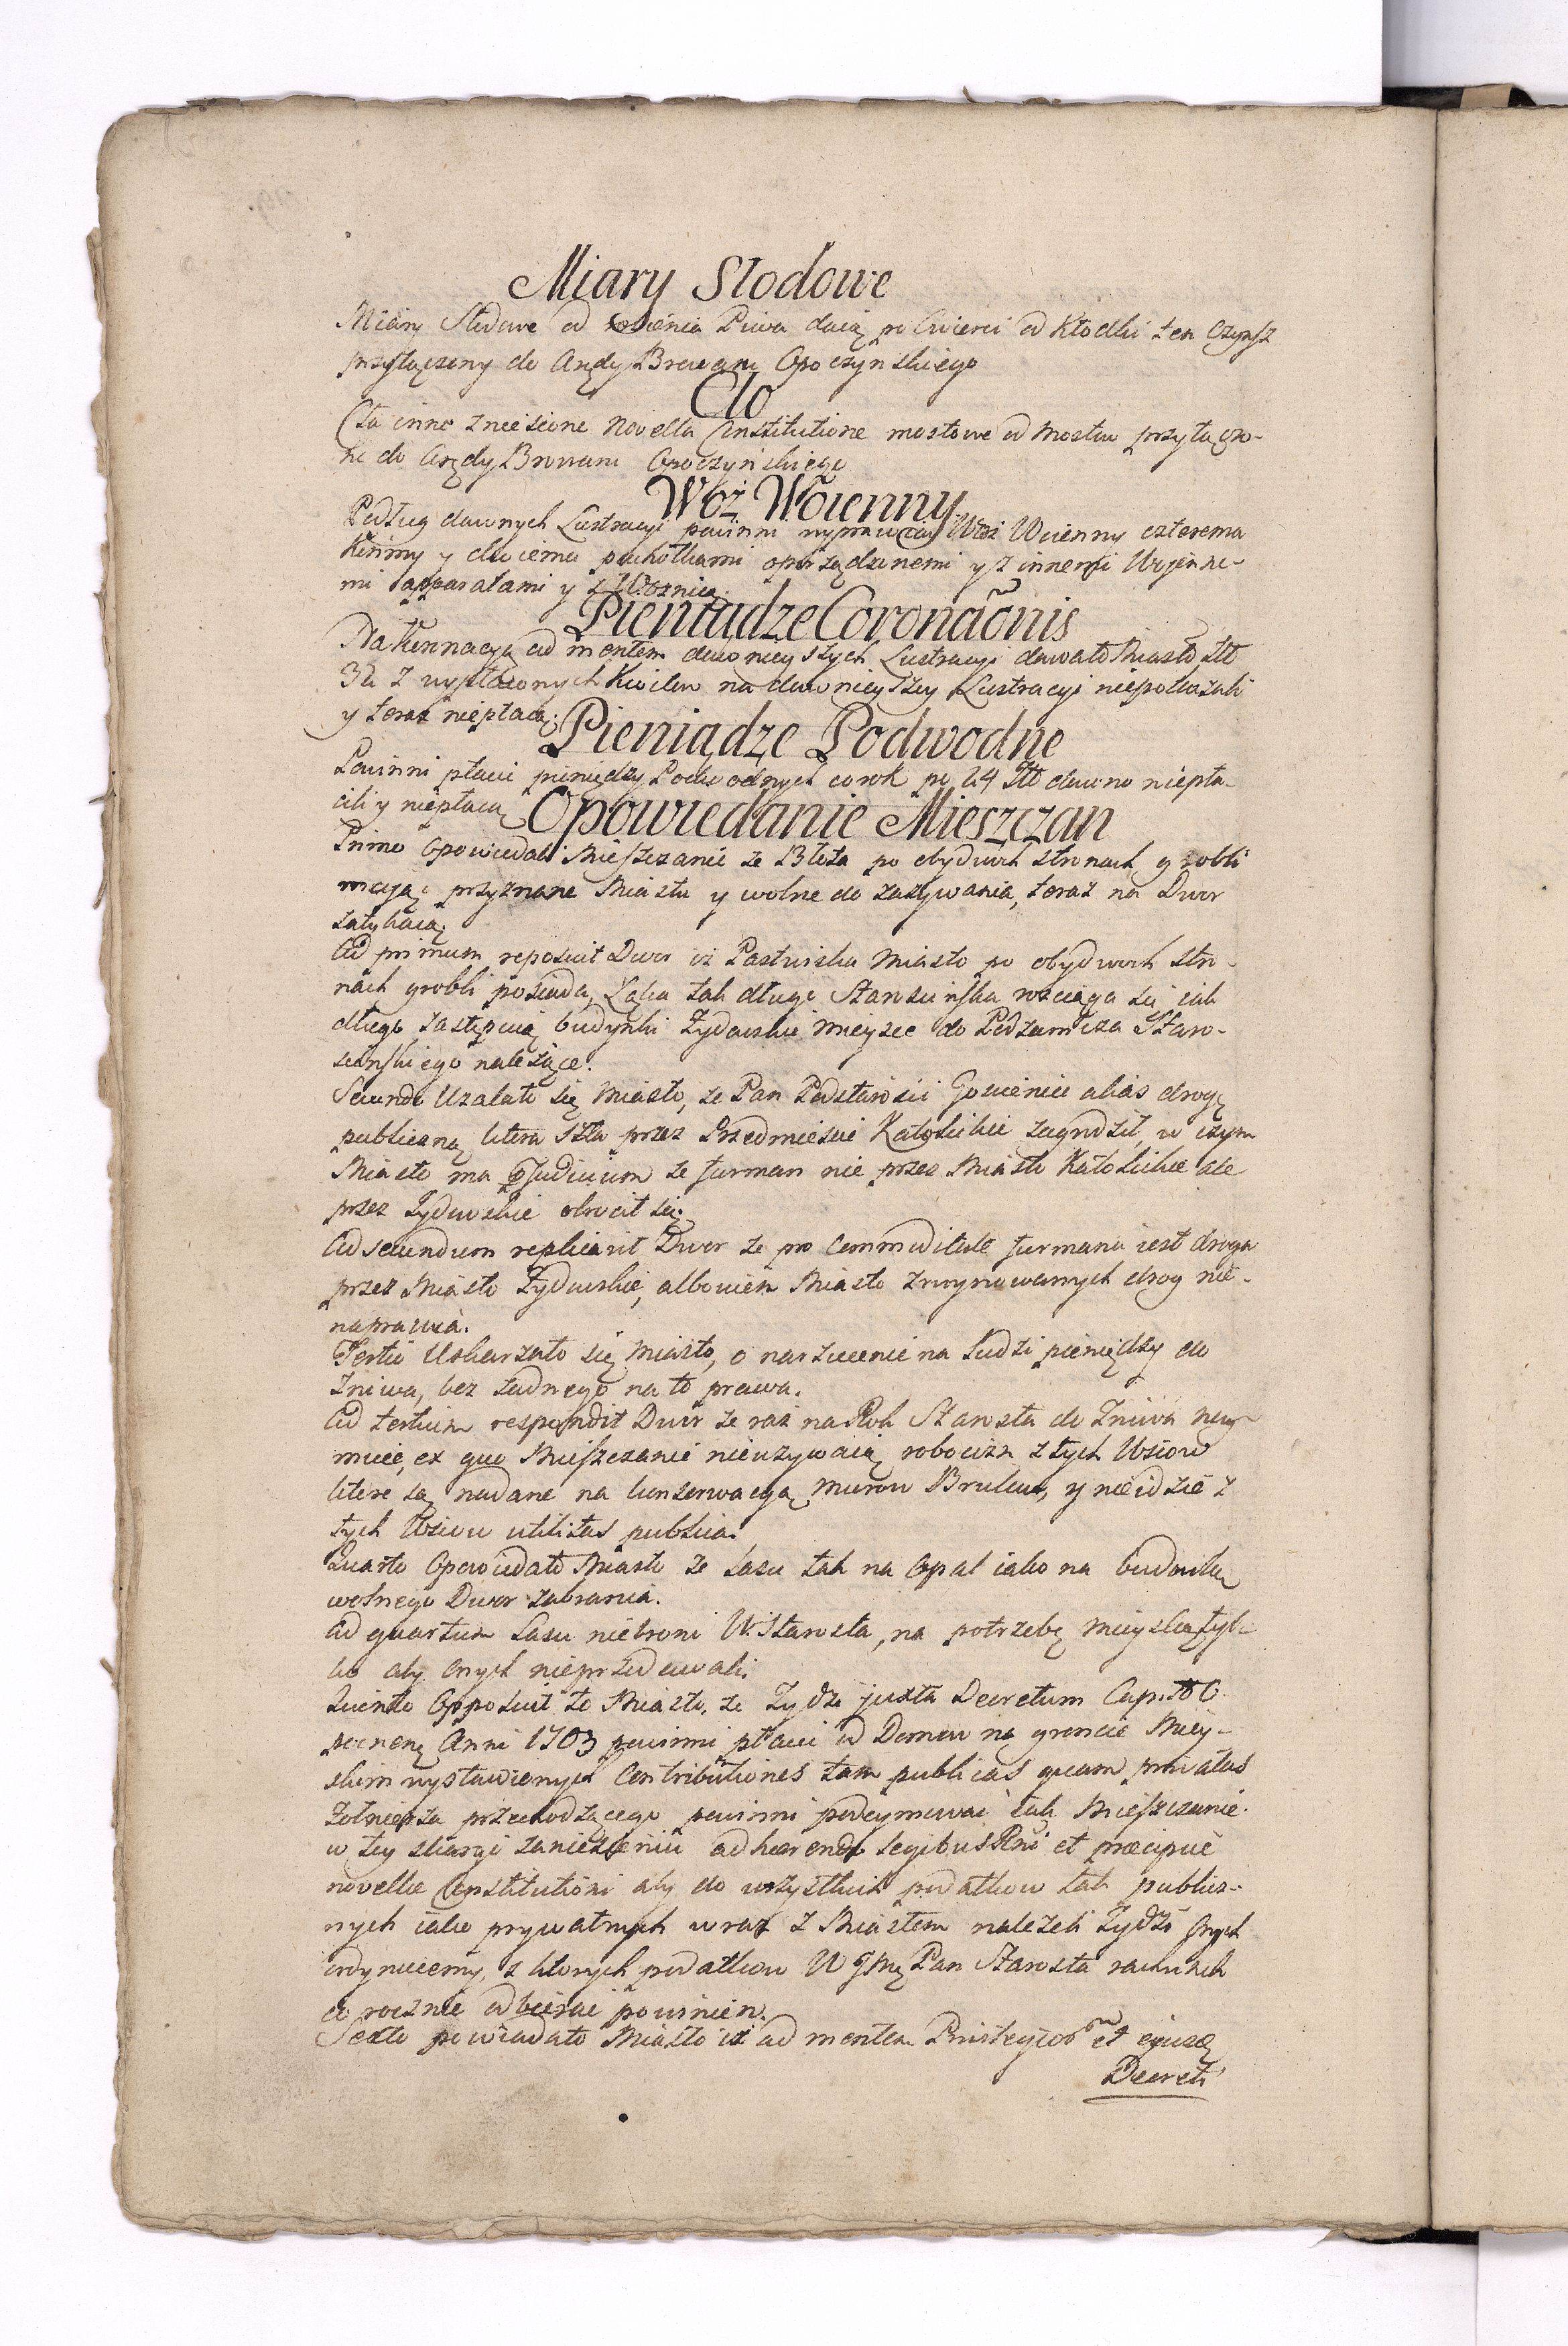 Miary Słodowe
Miary Słodowe od robienia Piwa daią po Cwierci od Kłodki ten Czynsz
przyłączony do Arędy Browaru Opoczynskiego
Cło
Cła inne zniesione Novella Constitutione mostowe od Mostu przyłączo-
ne do Arędy Browaru Opoczynskiego
Woz Woienny
Podług dawnych Lustracyi powinni wyprawiac Woz Woienny czterema
Konmy y dwoiema pachołkami oporządzonemi y z innemi Woienne-
mi apparatami y z Woznicą.
Pieniądze Coronaõnis
Na Koronacyą ad mentem dawnieyszych Lustracyi dawało Miasto Zło
30 z wypłaconych Kwitow na dawnieyszey Lustracyi niepokazali
y teraz niepłacą.
Pieniądze Podwodne
Powinni płacic pieniędzy Podwodnych co rok po 24 Zło dawno niepła-
cili y niepłacą
Opowiedanie Mieszczan
Primo Opowiedali Mieszczanie ze Błota po obydwoch stronach grobli
maiąc przyznane Miastu y wolne do zazywania, teraz na Dwor
zatykaią.
Ad primum reposuit Dwor iz Pastwiska Miasto po obydwoch stro-
nach grobli posiada, Łąka tak długo Starościńska rozciąga się iak
długo zastępuią budynki Zydowskie mieysce do Podzamcza Staro-
scinskiego nalezące.
Secundo Uzalało się Miasto, ze Pan Podstarosci Goscieniec alias drogę
publiczną ktora szła przez Przedmiescie Katolickie zagrodził, w czym
Miasto ma pjudicium ze furman nie przez Miasto Katolickie ale
przez Zydowskie obrocił się.
Ad secundum replicavit Dwor ze pro commoditate furmana iest droga
przez Miasto Zydowskie, albowiem Miasto zruynowanych drog nie-
naprawia.
Tertio Uskarzało się Miasto, o narzucenie na Ludzi pieniędzy do
zniwa, bez zadnego na to prawa.
Ad tertium respondit Dwor ze raz na Rok Starosta do Zniwa nay-
muie, ex quo Mieszczanie nieuzywaią robocizn z tych Wsiow
ktore są nadane na konserwacyą murow Brukow, y nieidzie z
tych Wsiow utilitas publica.
Quarto Opowiedało Miasto ze Lasu tak na Opał iako na budowlą
wolnego Dwor zabrania.
Ad quartum Lasu niebroni W. Starosta, na potrzebę mieyską tyl-
ko aby onych nieprzedawali.
Quinto Opposuit to Miasto, ze Zydzi juxta Decretum Cap. O
pocnenę Anni 1703 powinni płacic od Domow na groncie Miey-
skim wystawionych Contributiones tam publicas quam privatas
Zołnierza przechodzącego powinni podeymowac tak Mieszczanie.
w tey skargi zaniesieniu adhaerendo legibus Rni et praecipuè
novellae Constitutioni aby do wszystkich podatkow tak publicz-
nych iako prywatnych wraz z Miastem nalezeli Zydzi onych
ordynuiemy, z ktorych podatkow W Jmę Pan Starosta rachunek
co rocznie odbierac powinien.
Sexto powiadało Miasto iz ad mentem Privilegior et ejusdę
Decreti